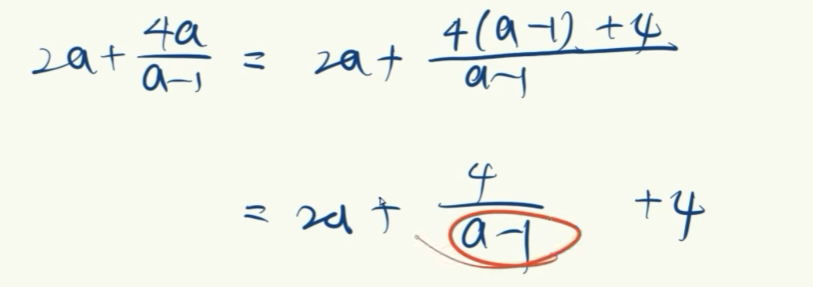 2a + 4a/(a-1) = 2a + (4(a-1)+4)/(a-1)
= 2a + 4/(a-1) + 4